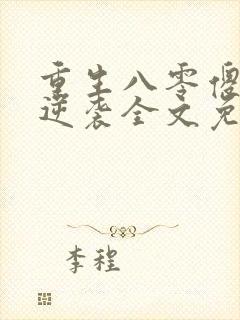 重生八零傻
逆袭全文免
李程